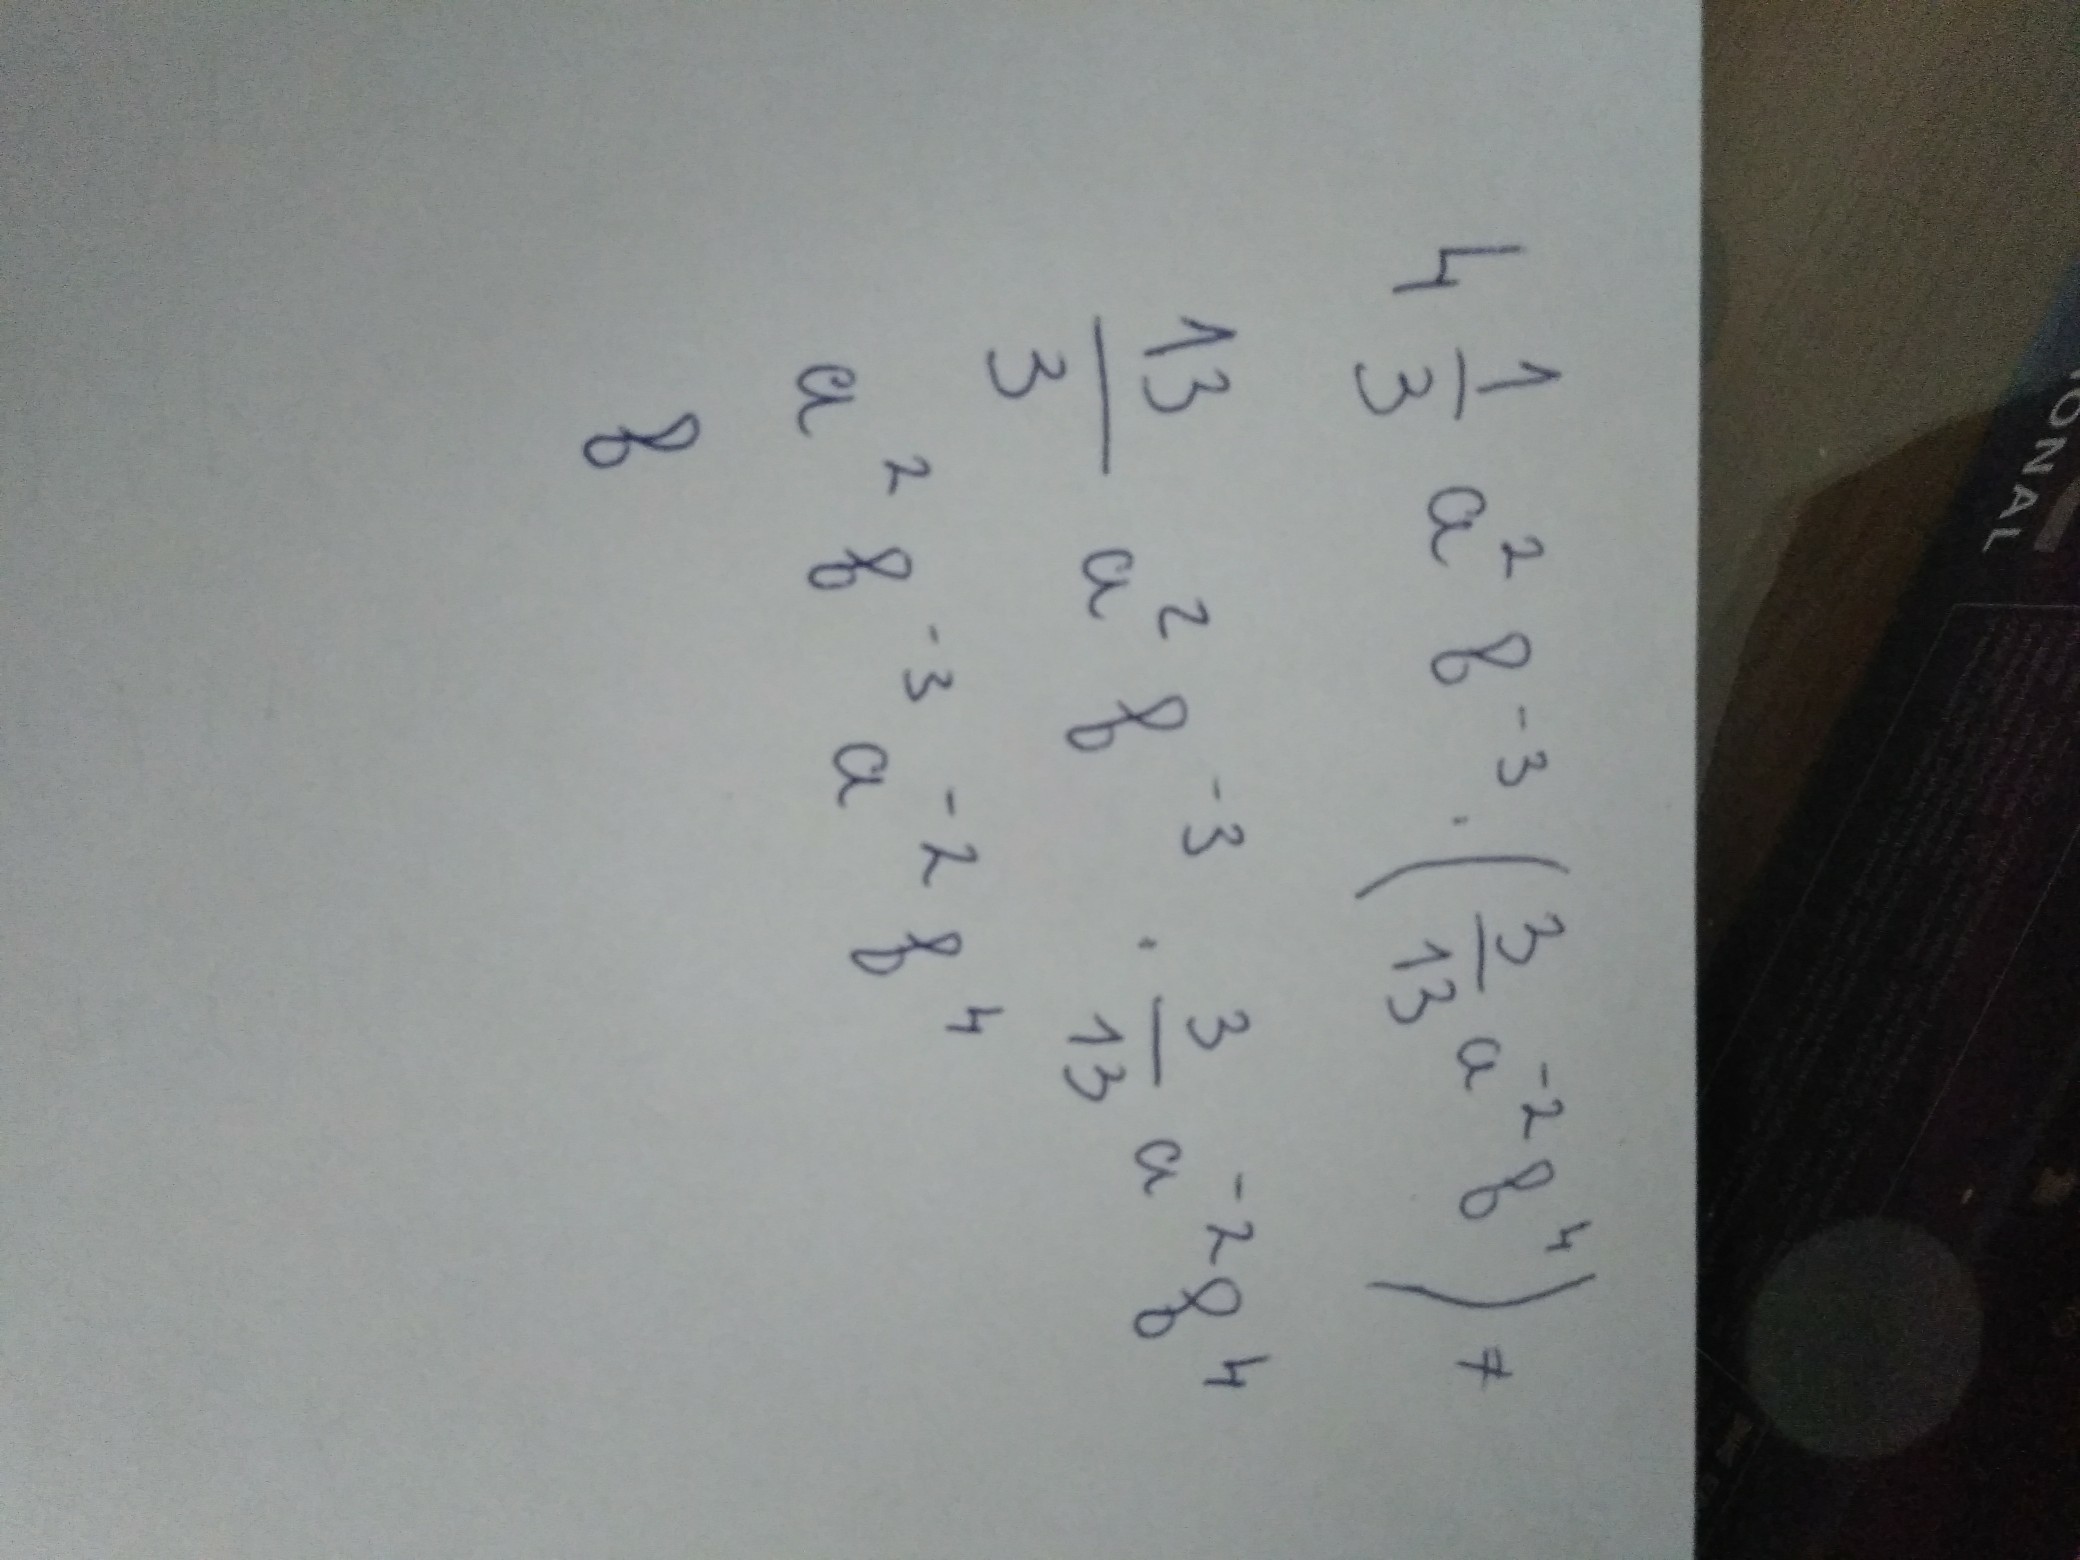 4 1/3 a² b⁻³ · (3/13 a⁻² b⁴) =
13/3 a² b⁻³ · 3/13 a⁻² b⁴
a² b⁻³ a⁻² b⁴
b
IONAL